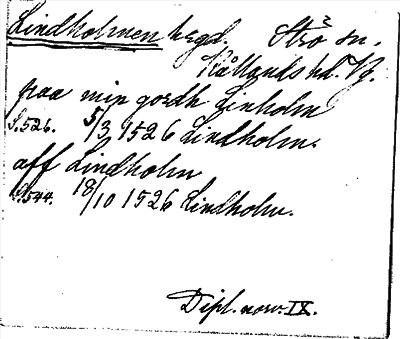 Lindholmen hsgd. Strö sn.
Kållands hd. Vg.
paa min gordh Linholm
S.526. 5/3 1526 Lindholm.
aff Lindholm
S.544. 18/10 1526 Lindholm.
Dipl. norv. IX.